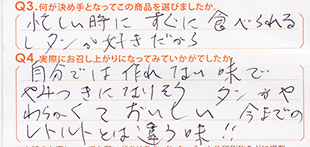 Q3.何が決め手となってこの商品を選びましたか
忙しい時にすぐに食べられる
しタンが好きだから
Q4.実際にお召し上がりになってみていかがでしたか
自分では作れない味で
やみつきになりそう タンがや
わらかくておいしい 今までの
レトルトとは違う味!!